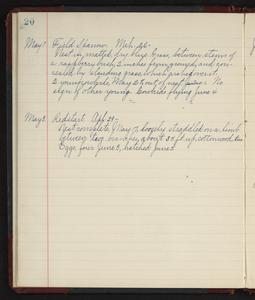 20
May 1 Field Sparrow. Mch. 25-
Nest in matted blue flag grass, between stems of
a raspberry bush, 2 inches from ground, and con-
cealed by standing grass which arched over it.
2 young
sign of other young. Cowbirds flying June 4
May 3 Redstart Apr 29-
Nest complete, May 7, loosely straddled on a limb
between two branches, about 30 ft. up, cottonwood tree
Eggs, four June 3, hatched June 5